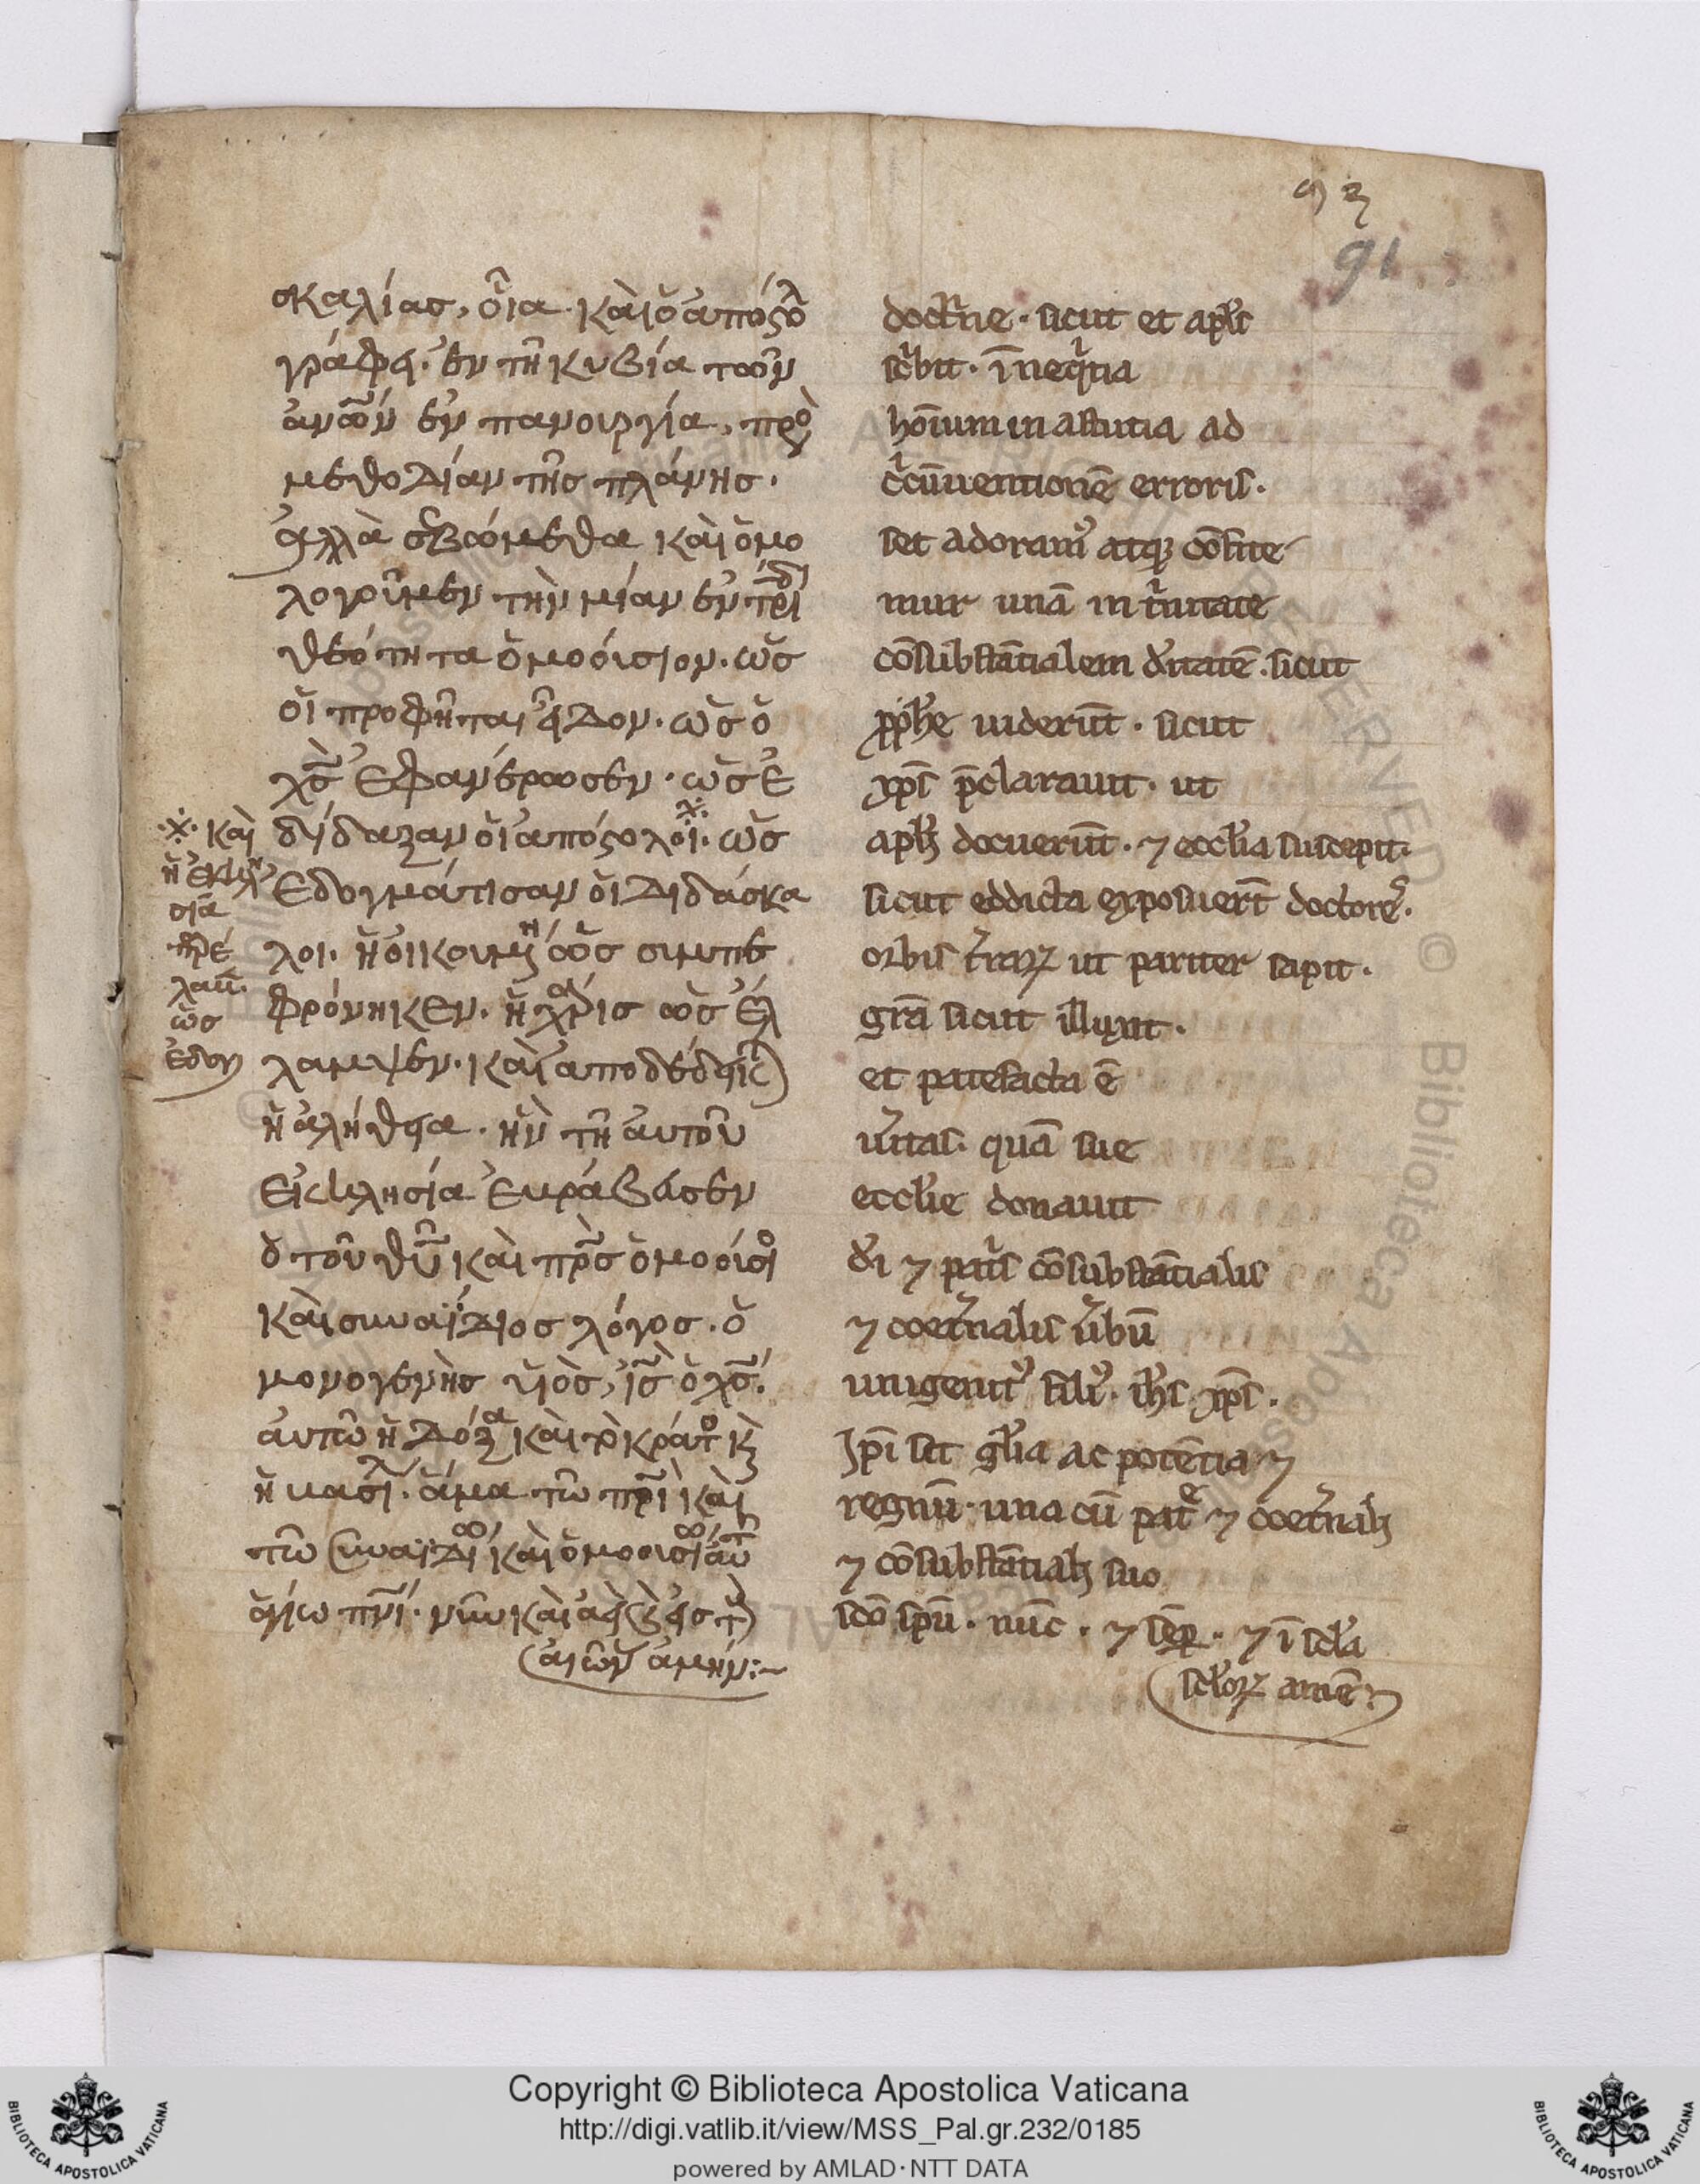 93
91
σκαλίας, οἷα καὶ ὁ ἀπόστολ
γράφει· ἐν τῆ κυβία τῶν
ἀνων ἐν πανουργία, πρὸς
μεθοδίαν τῆς πλάνης·
ἀλλὰ σεβόμεθα καὶ ὁμο
λογοῦμεν τὴν μίαν ἐν τριάδι
θεότητα ὁμοούσιον· ὡς
οἱ προφῆται εἶδον· ὡς ὁ
χς ἐφανέρωσεν· ὡς ἐ
δίδαξαν οἱ ἀπόστολοι· ὡς
ἐδογμάτισαν οἱ διδάσκα
λοι· ἡ οἰκουμένη ὡς συμπε
φρόνηκεν· ἡ χάρις ὡς ἔλ
λαμψεν· καὶ ἀποδέδεικται
ἡ ἀλήθεια· ἣν τῆ αὐτοῦ
ἐκκλησία ἐβράβευσεν
ὁ τοῦ θυ καὶ πρς ὁμοούσιος
καὶ συναΐδιος λόγος· ὁ
μονογενὴς υἱὸς, ις ὁ χς·
αὐτῶ ἡ δόξα καὶ τὸ κράτος κ
ἡ βασιλ· ἅμα τῶ πρι καὶ
τῶ συναϊδίω καὶ ὁμοουσίω αὐτ
ἁγίω πνι· νῦν καὶ ἀεὶ κ εἰς τ
αἰῶν ἀμήν:~
※ καὶ
ἡ ἐκκλη
σία
παρέ
λα
ὡς
ἐδογ
doctne· sicut et apls
scbit· i neqtia
hoium in astutia ad
ccuuentione erroris·
set adoram atq confite
mur una in tnitate
consubstantialem ditate· sicut
pphe uiderut· sicut
xps pclarauit· ut
apli docuerut· ⁊ ecclia suscepit·
sicut eddicta exposuert doctores·
orbis trarꝝ ut pariter sapit·
gra sicut illuxit·
et patefacta e
uitas· qua sue
ecclie donauit
di ⁊ patis cosubstatialis
⁊ coetnalis ubu
unigenit fili· ihs xps·
Ipi sit glia ac potetia ⁊
regnu· una cu pate ⁊ coetnali
⁊ cosubstatiali suo
sco spu· nuc· ⁊ semp· ⁊ i scla
scloꝝ ame:
Copyright © Biblioteca Apostolica Vaticana
http://digi.vatlib.it/view/MSS_Pal.gr.232/0185
powered by AMLAD·NTT DATA
BIBLIOTECA APOSTOLICA VATICANA
BIBLIOTECA APOSTOLICA VATICANA